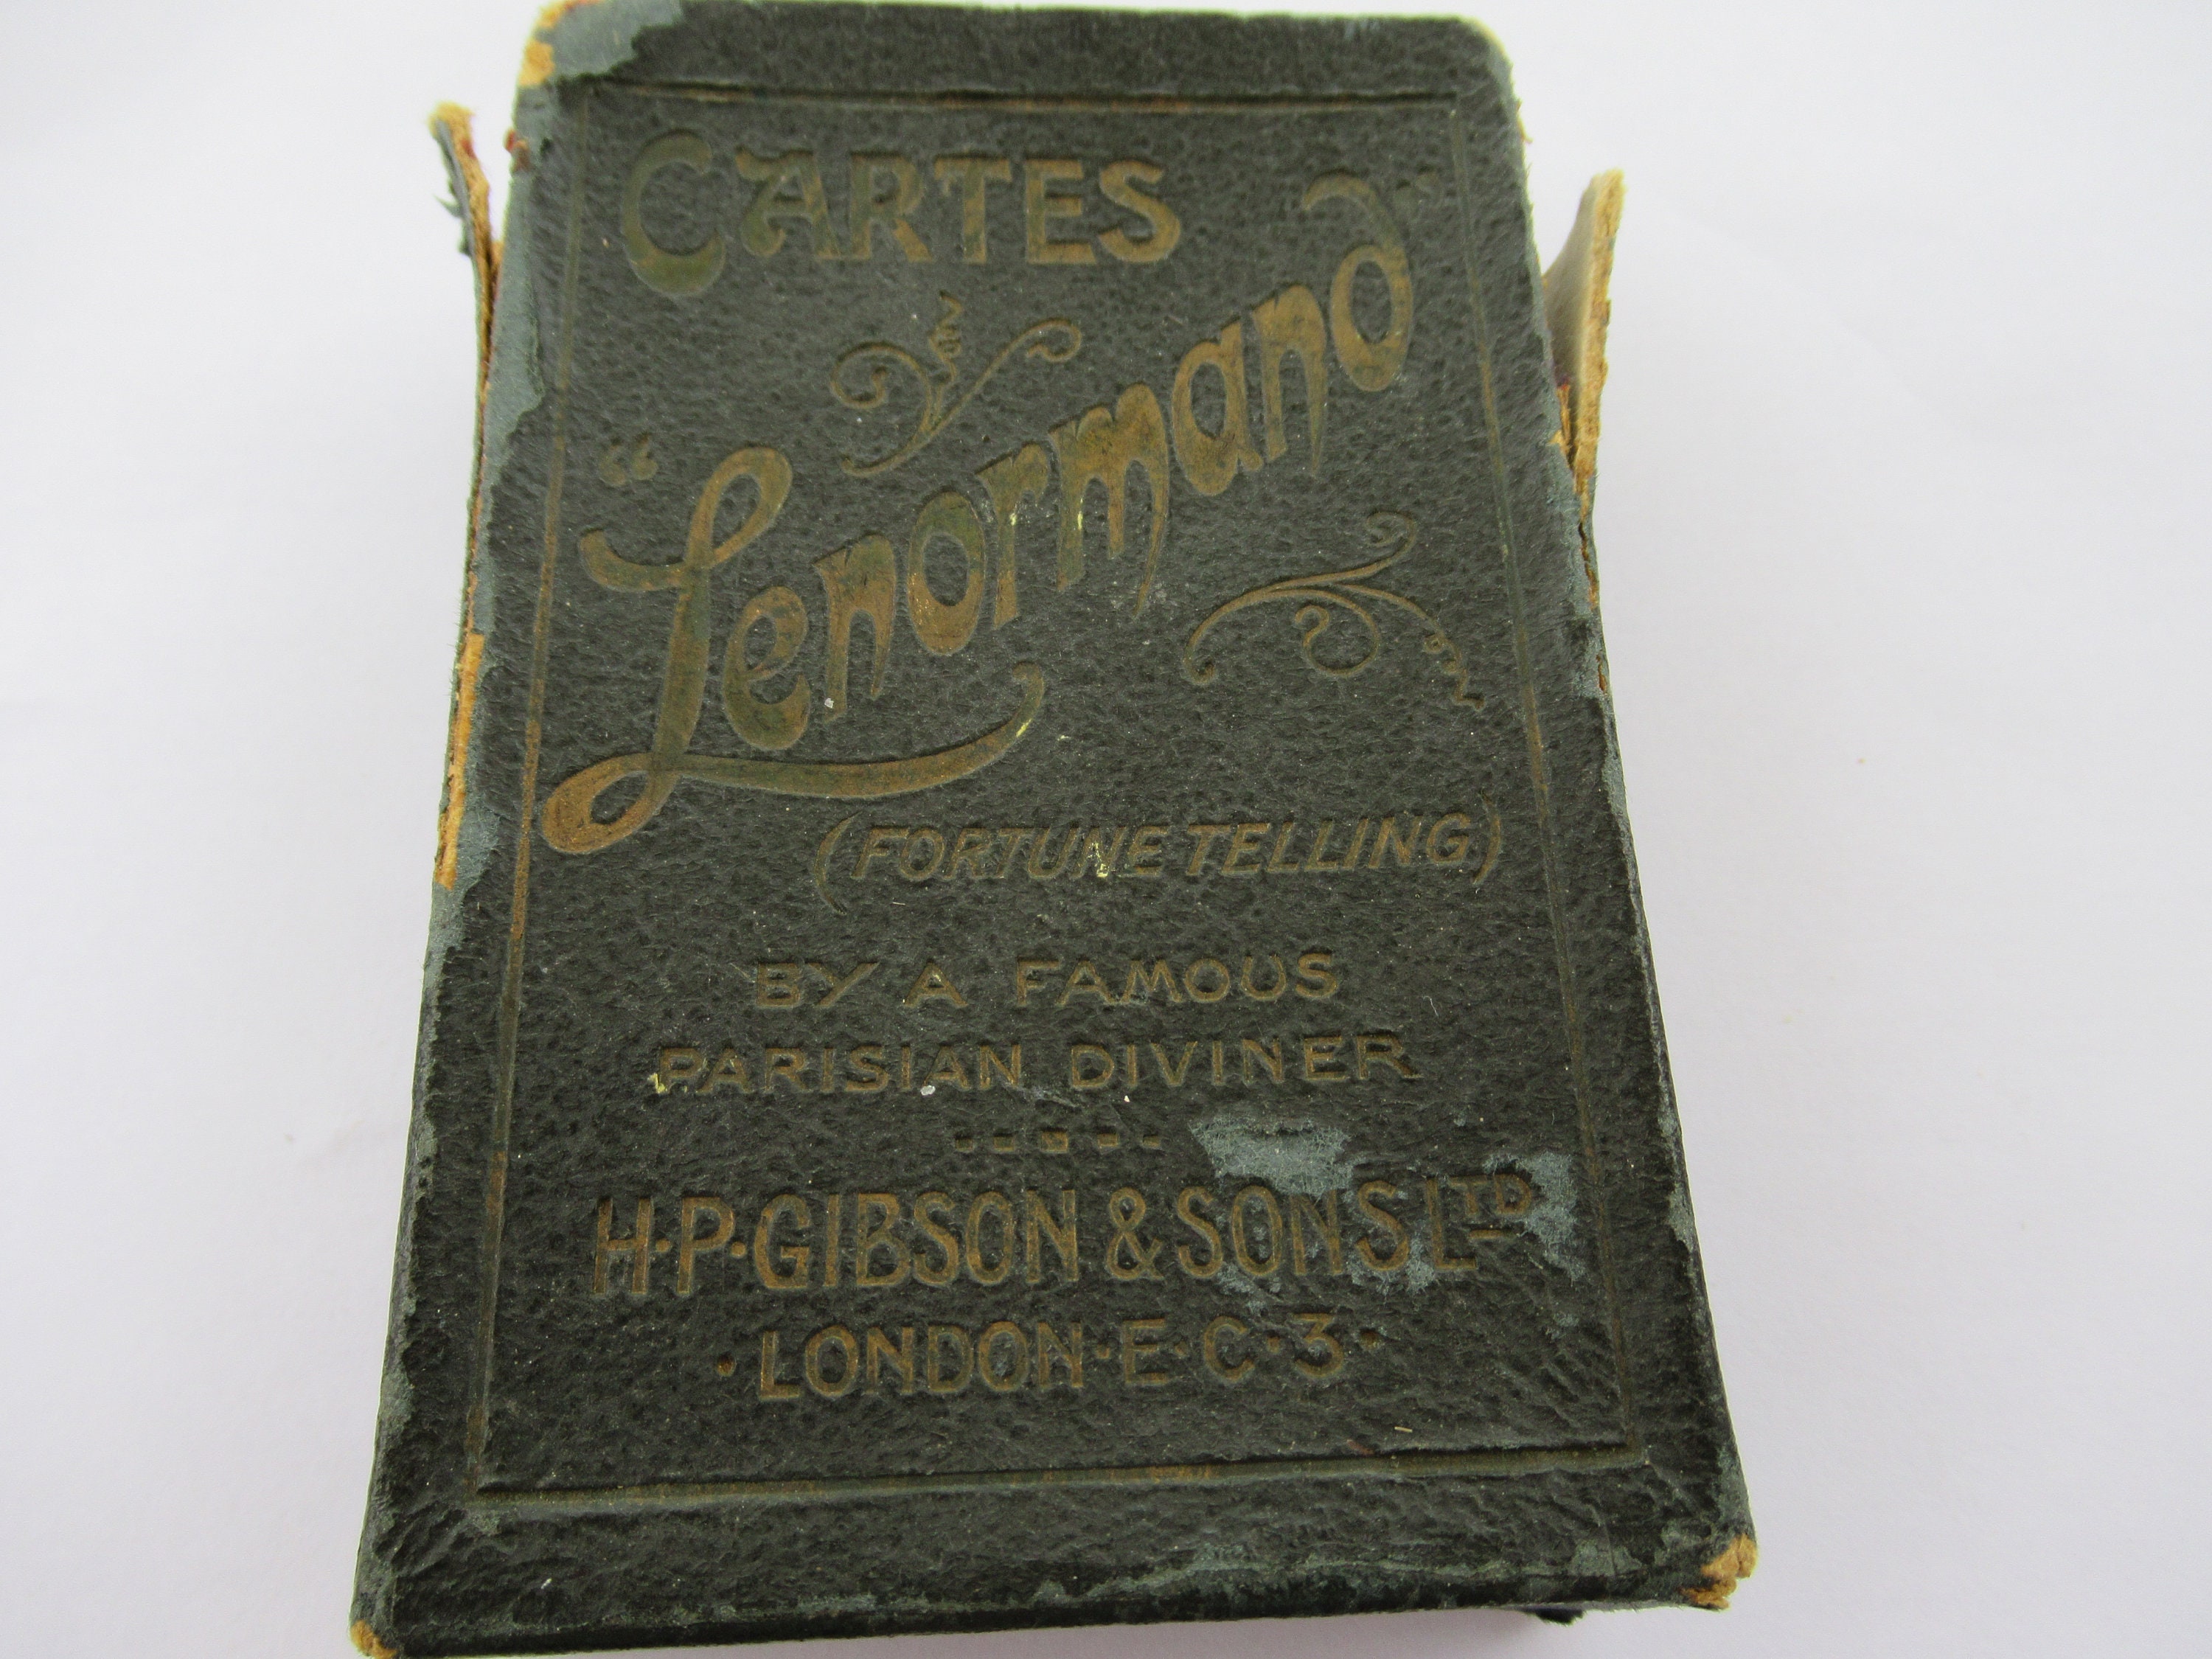 CARTES
"Lenormand"
(FORTUNE TELLING.)
BY A FAMOUS
PARISIAN DIVINER
H·P·GIBSON & SONS LTD
·LONDON·E·C·3·